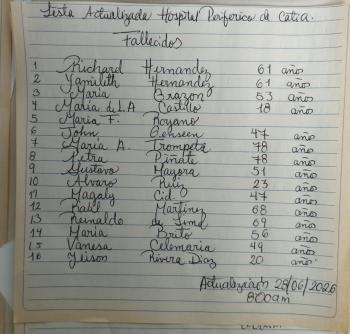 Lista Actualizada Hospital Periferico de Catia.
Fallecidos
1 Richard Hernandez 61 años
2 Yamileth Hernandez 61 años
3 Maria Grazon 53 años
4 Maria de L.A Castillo 18 años
5 Maria F. Royano
6 John Jenseen 47 años
7 Maria A. Trompeta 78 años
8 Petra Piñate 78 años
9 Gustavo Mayora 51 años
10 Alvaro Ruiz 23 años
11 Magaly Cid. 47 años
12 Raul Martinez 68 años
13 Reinaldo de Lima 69 años
14 Maria Brito 56 años
15 Vanesa Celemaria 49 años
16 Jeison Rivera Diaz 20 años.
Actualización 28/06/2026
8:00am